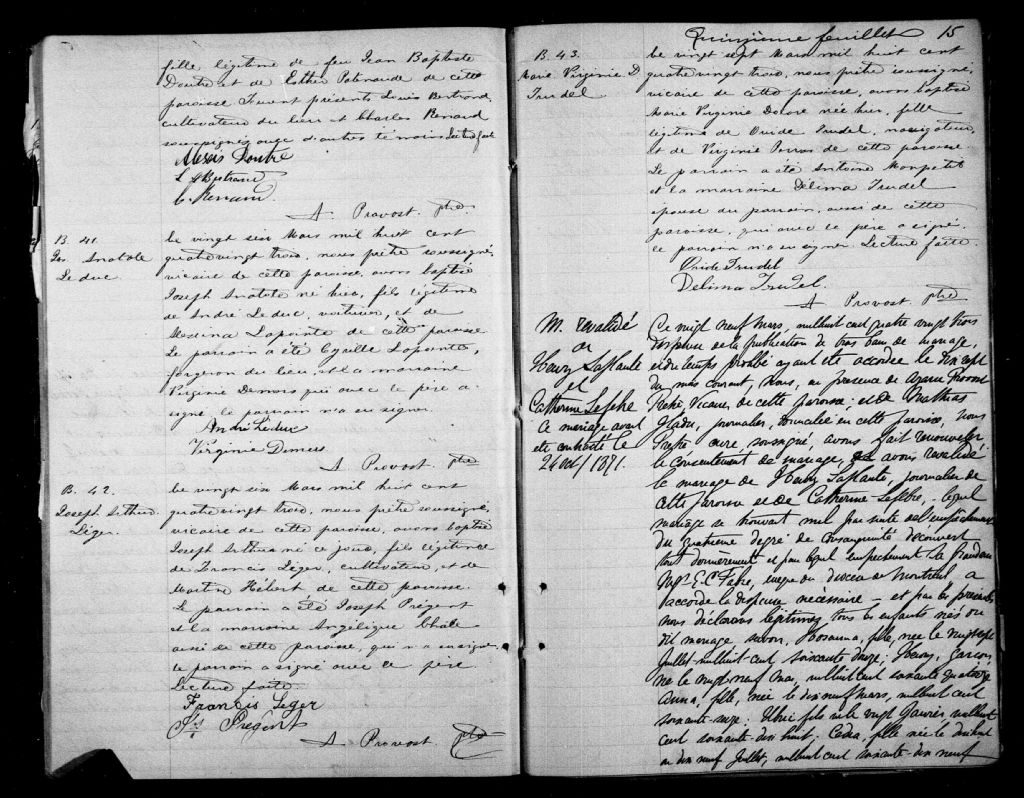 fille légitime de feu Jean Baptiste
Doutre et de Esther Patenaude de cette
paroisse Furent présents Louis Bertrand,
cultivateur du lieu et Charles Renard
soussignés avec d'autres témoins Lecture faite
Alexis Doutre
L H Bertrand
C. Renard
A. Provost. ptre
B. 41.
Jos. Anatole
Leduc
Le vingt six Mars mil huit cent
quatrevingt trois, nous prêtre soussigné,
vicaire de cette paroisse, avons baptisé
Joseph Anatole né hier, fils légitime
de André Leduc, voiturier, et de
Mexina Lapointe de cette paroisse
Le parrain a été Cyrille Lapointe,
forgeron du lieu et la marraine
Virginie Demers qui avec le père a
signé le parrain n'a su signer.
André Leduc
Virginie Demers
A Provost ptre
B. 42.
Joseph Arthur
Léger.
Le vingt six Mars mil huit cent
quatrevingt trois, nous prêtre soussigné,
vicaire de cette paroisse, avons baptisé
Joseph Arthur né ce jour, fils légitime
de Francis Léger, cultivateur, et de
Martine Hébert de cette paroisse.
Le parrain a été Joseph Prégent
et la marraine Angélique
aussi de cette paroisse, qui n'a su signer
Le parrain a signé avec le père
Lecture faite.
Francis Leger
Jos Pregent
A Provost ptre
Quinzième feuillet 15
B. 43.
Marie Virginie D
Trudel
Le vingt sept Mars mil huit cent
quatrevingt trois, nous prêtre soussigné,
vicaire de cette paroisse, avons baptisé
Marie Virginie née hier, fille
légitime de Ovide Trudel, navigateur,
et de Virginie Perras de cette paroisse.
Le parrain a été Antoine Monpetit
et la marraine Délima Trudel
épouse du parrain, aussi de cette
paroisse, qui avec le père a signé,
le parrain n'a su signer Lecture faite
Ovide Trudel
Delima Trudel.
A Provost ptre
M. revalidé
de
Henry Laplante
et
Catherine Lefebre
Ce mariage avait
été contracté le
24 oct/1871.
Ce vingt neuf Mars, mil huit cent quatre vingt trois
dispense de la publication de trois bans de mariage,
et du temps prohibé ayant été accordée le dix sept
du mois courant, Nous, en présence de Provost
Prêtre, Vicaire, de cette paroisse, et de Mathias
Gladu, journalier, domicilié en cette paroisse, nous
Prêtre curé soussigné avons fait renouveler,
le consentement de mariage, avons revalidé
le mariage de Henry Laplante, journalier de
cette paroisse et de Catherine Lefebre, lequel
mariage se trouvait nul par suite de l'empêchement
du quatrième degré de consanguinité découvert
tout dernièrement et pour lequel empêchement sa Grandeur
Mgr E. C Fabre, evêque du diocese de Montréal a
accordé la dispense nécessaire - et par les présentes
nous déclarons légitimes tous les enfants nés du
dit mariage savoir, Hosanna, fille, née le vingt sept
Juillet mil huit cent soixante douze; Henry, garçon,
né le vingt neuf mai, mil huit cent soixante quatorze
Anna, fille, née le dix neuf mars, mil huit cent
soixante seize; Ulric fils né le vingt Janvier mil huit
cent soixante dix huit; fille née le dix huit
ou dix neuf Juillet, mil huit cent soixante dix neuf